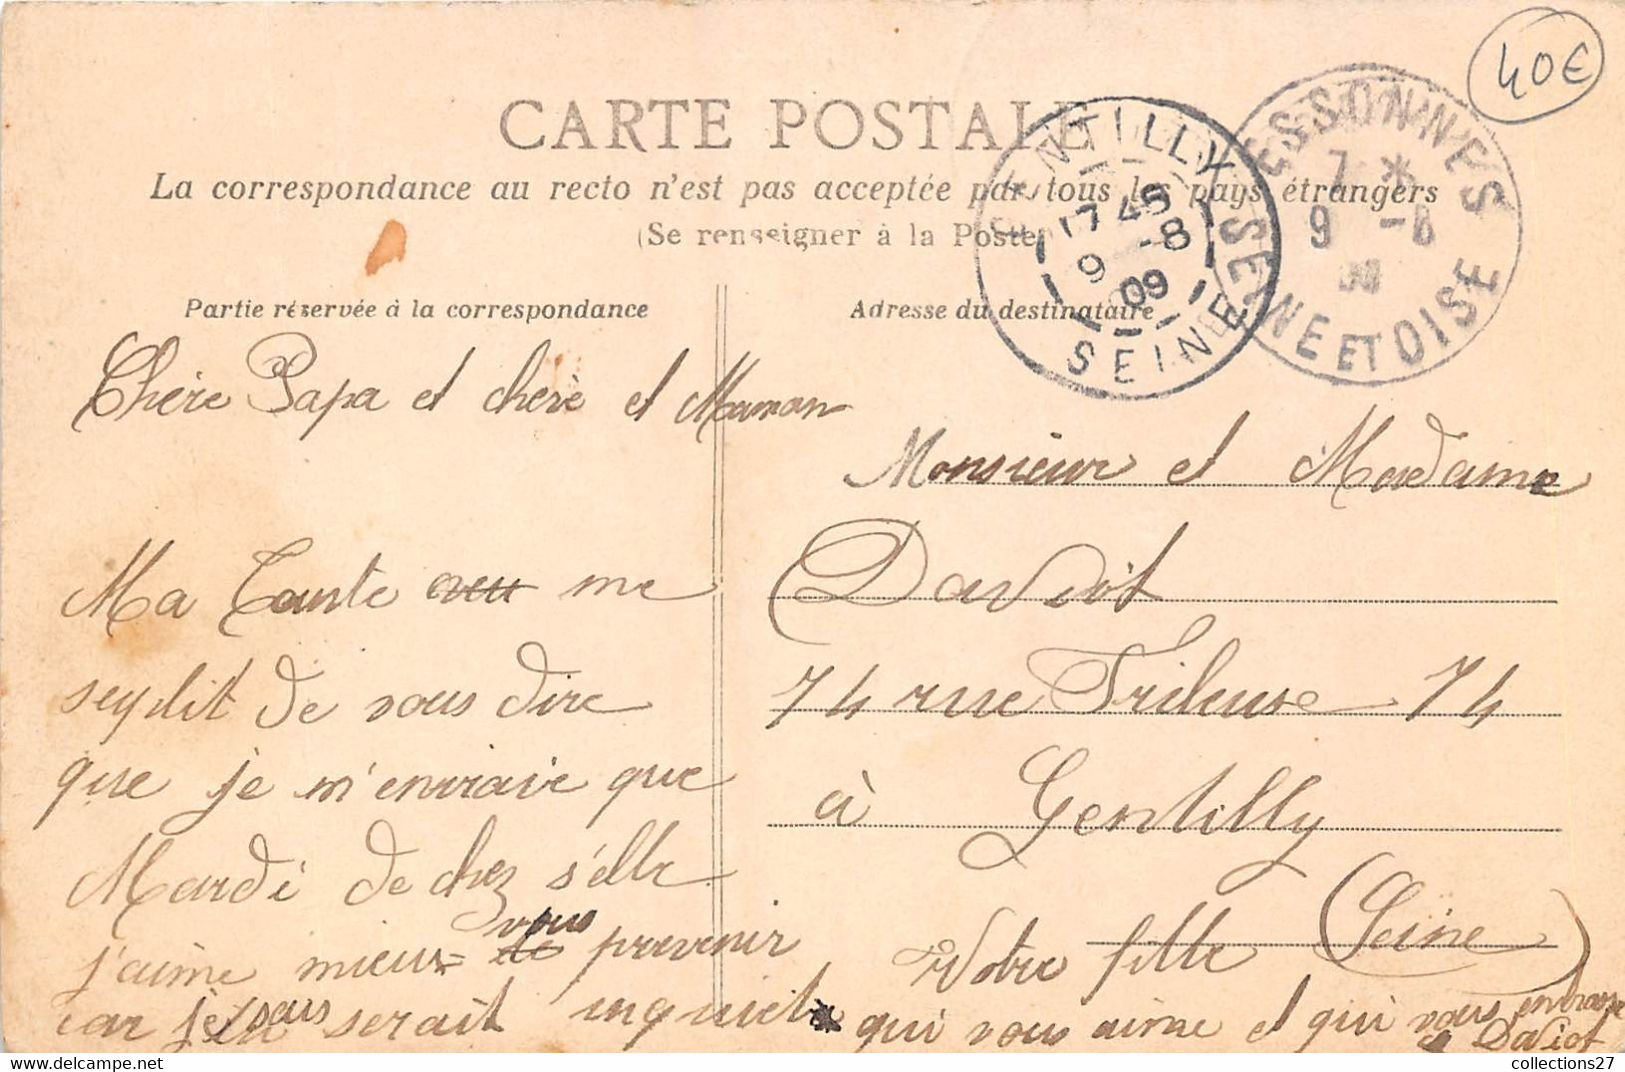 40€
CARTE POSTALE
La correspondance au recto n'est pas acceptée par tous les pays étrangers
(Se renseigner à la Poste)
GENTILLY
17 45
9 -8
09
SEINE
ESSONNES
7 *
9 -8
09
SEINE ET OISE
Partie réservée à la correspondance
Adresse du destinataire
Chère Papa et chère et Maman
Ma Tante me
dit de vous dire
que je m'enviraie que
Mardi de chez s'elle
j'aime mieux vous prevenir
car serait inquiet
Monsieur et Madame
Daviot
74 rue Frileuse 74
à Gentilly
(Seine)
Votre fille
qui vous aime et qui vous embrasse
Daviot
collections27